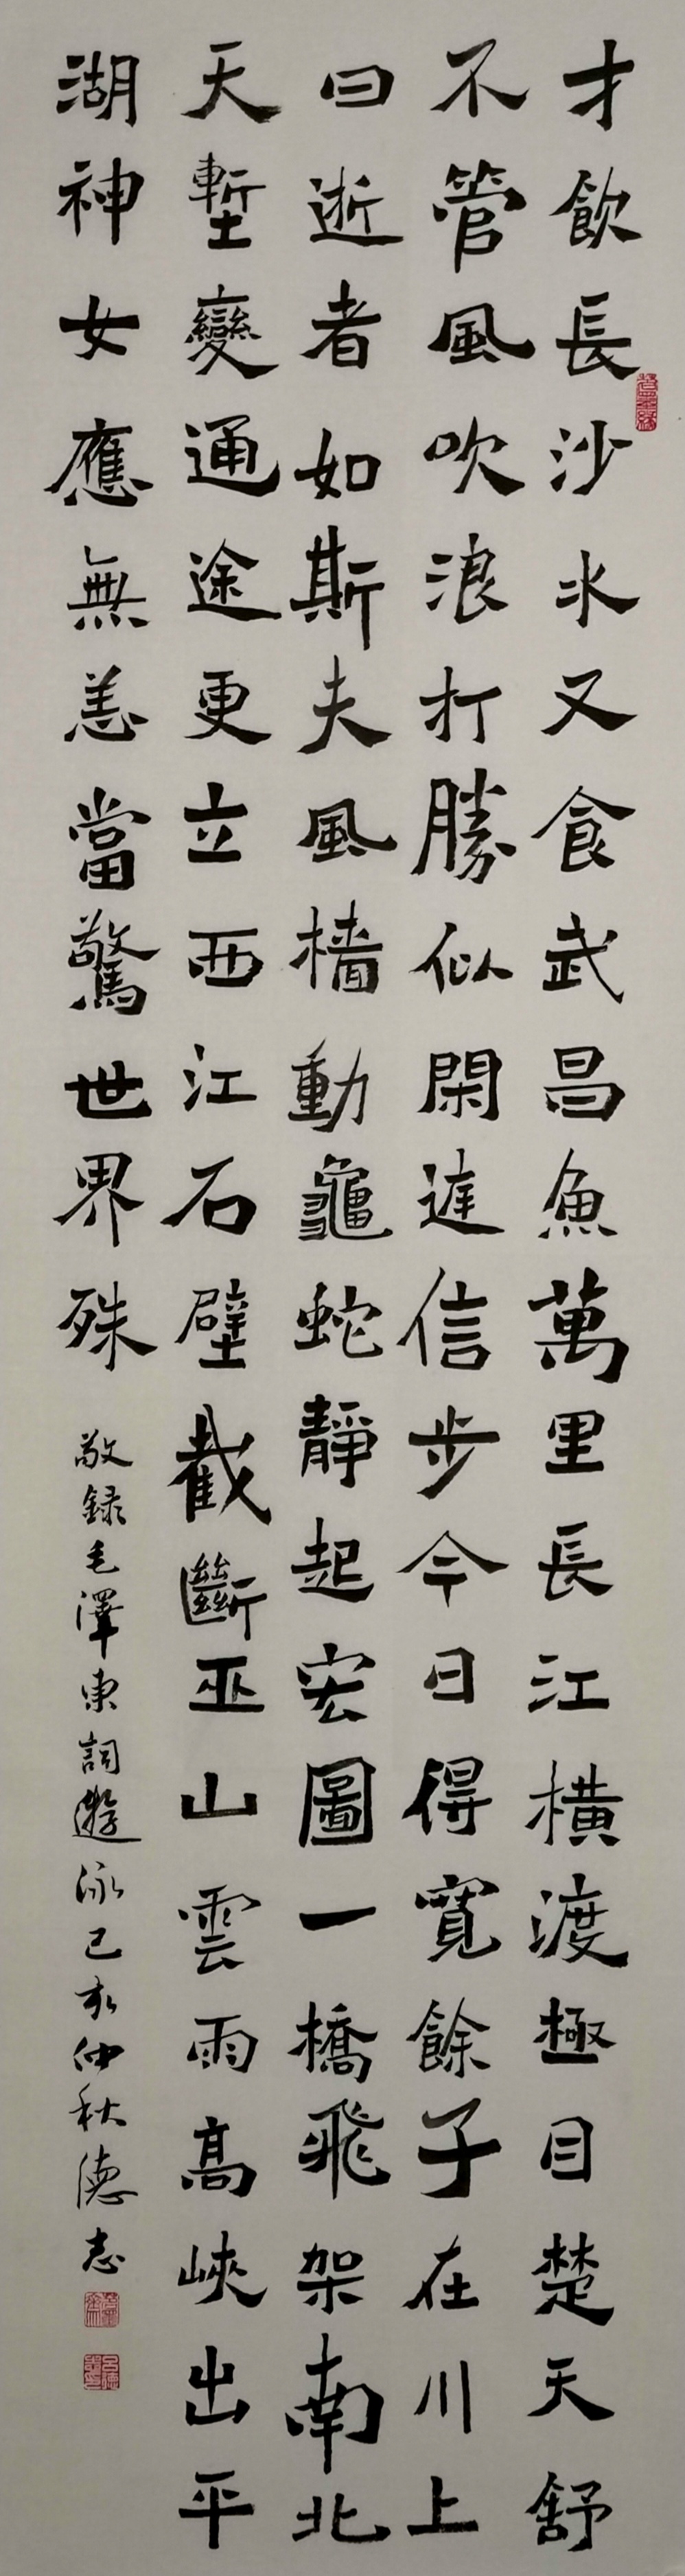 才飲長沙水又食武昌魚萬里長江横渡極目楚天舒
不管風吹浪打勝似閑庭信步今日得寬餘子在川上
曰逝者如斯夫風檣動龜蛇靜起宏圖一橋飛架南北
天塹變通途更立西江石壁截斷巫山雲雨高峽出平
湖神女應無恙當驚世界殊
敬録毛澤東詞遊泳己亥仲秋德志